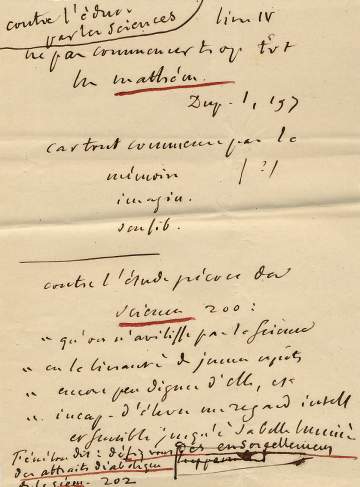 contre l'éduc.
par les sciences
lim IV
ne pas commencer trop tôt
les mathém.
Dup. 1, 157
car tout commence par la
mémoire (?)
imagin.
sensib.
contre l'étude précoce des
sciences 200 :
" qu'on n'avilisse pas la Science
" en la livrant à de jeunes esprits
" encore peu dignes d'elle, et
" incap. d'élever un regard intell
et sensible jusqu'à sa belle lumière
Fénélon dit : défiez vous des ensorcellemens
des attraits diaboliques
de la géom. 202